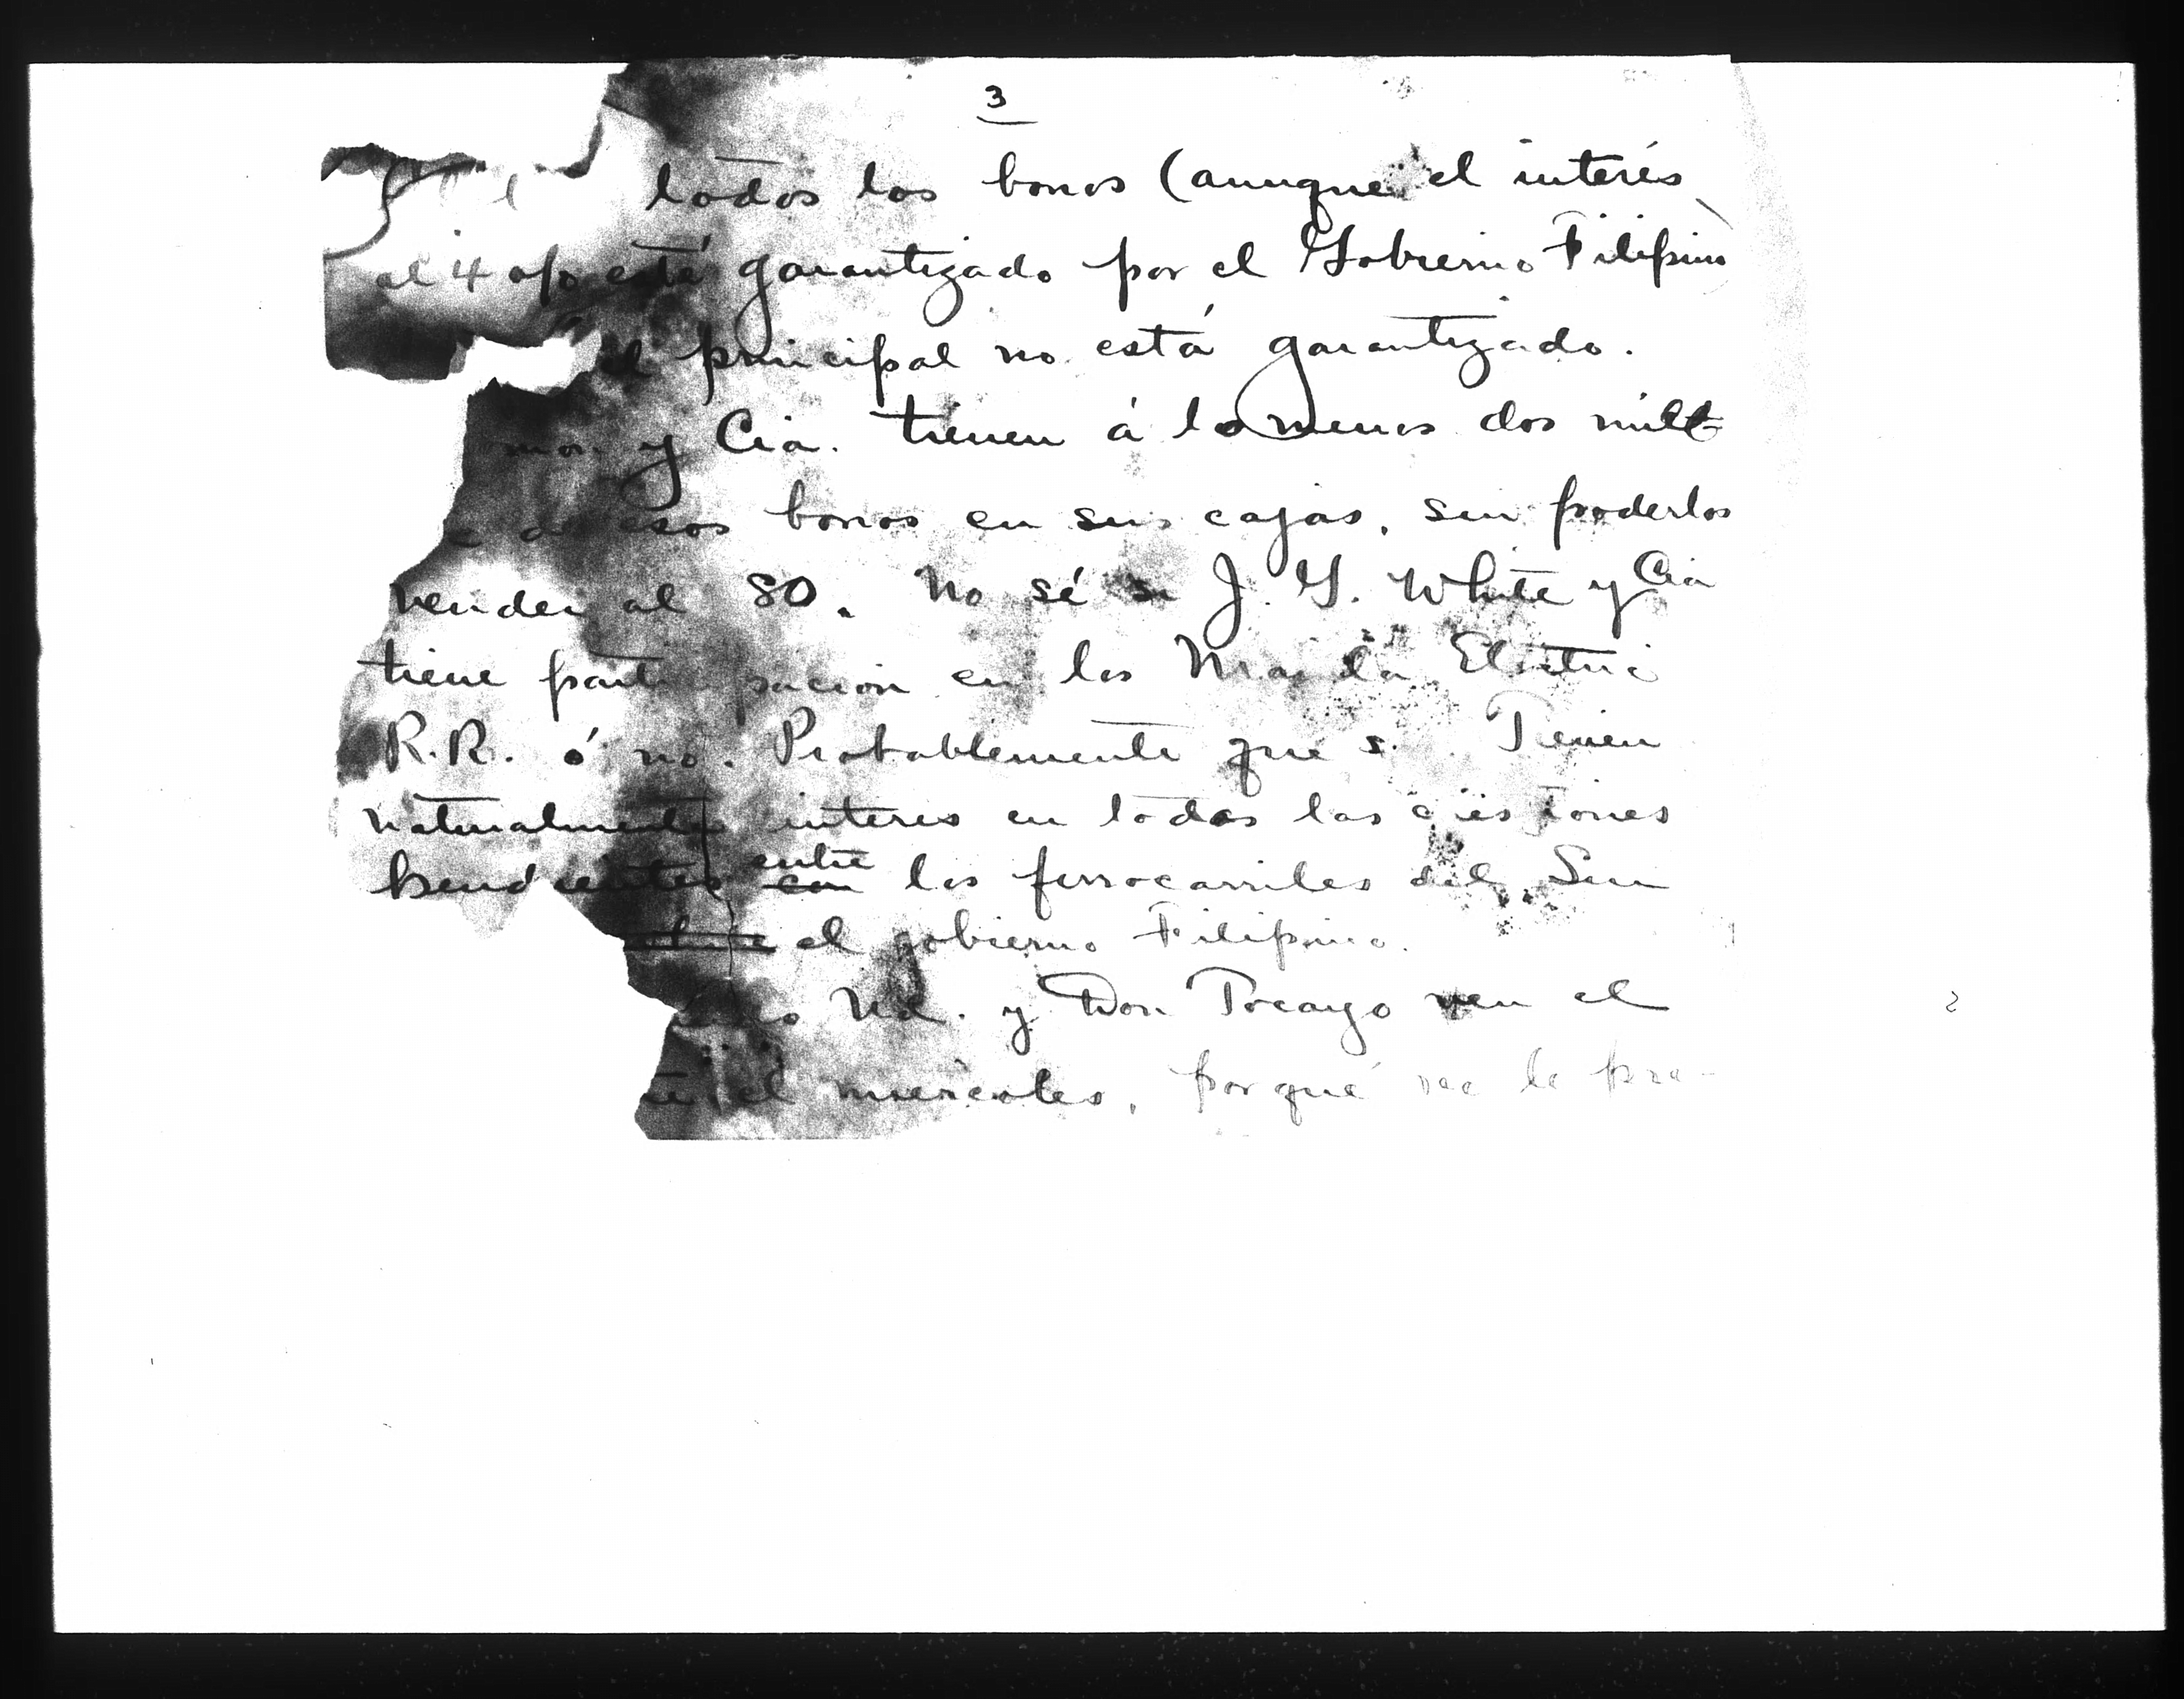 3
todos los bonos (aunque el interés
al 4 o/o está garantizado por el Gobierno Filipino)
el principal no está garantizado.
y Cia. tienen á lo menos dos mill
esos bonos en sus cajas, sin poderlos
vender al 80. No sé si J. G. White y Cia
tiene parti pación en los Manila Electric
R.R. ó no. Probablemente que si. Tienen
naturalmente interes en todas las cuestiones
pendientes entre los ferrocarriles del Sur
el gobierno Filipino.
Ud. y Don Tocayo ven el
el miercoles, porqué me le pre-